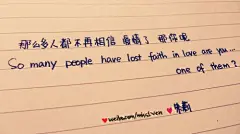 那么多人都不再相信 爱情了 那你呢
So many people have lost faith in love are you...
one of them?
♥weibo.com/mhslven ♥ 朱莉